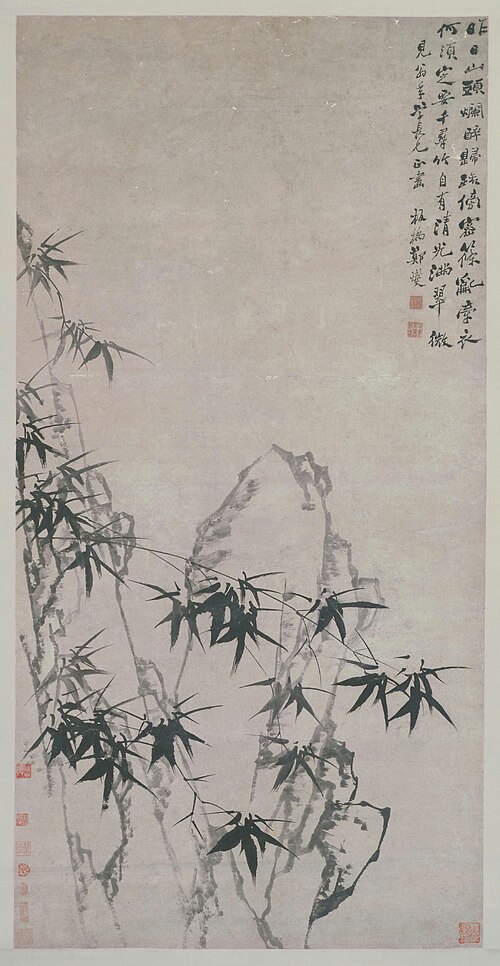 昨日山頭爛醉歸路傍密篠亂牽衣
何須定要千尋竹自有清光滿翠微
見翁年學長兄正畫 板橋鄭燮